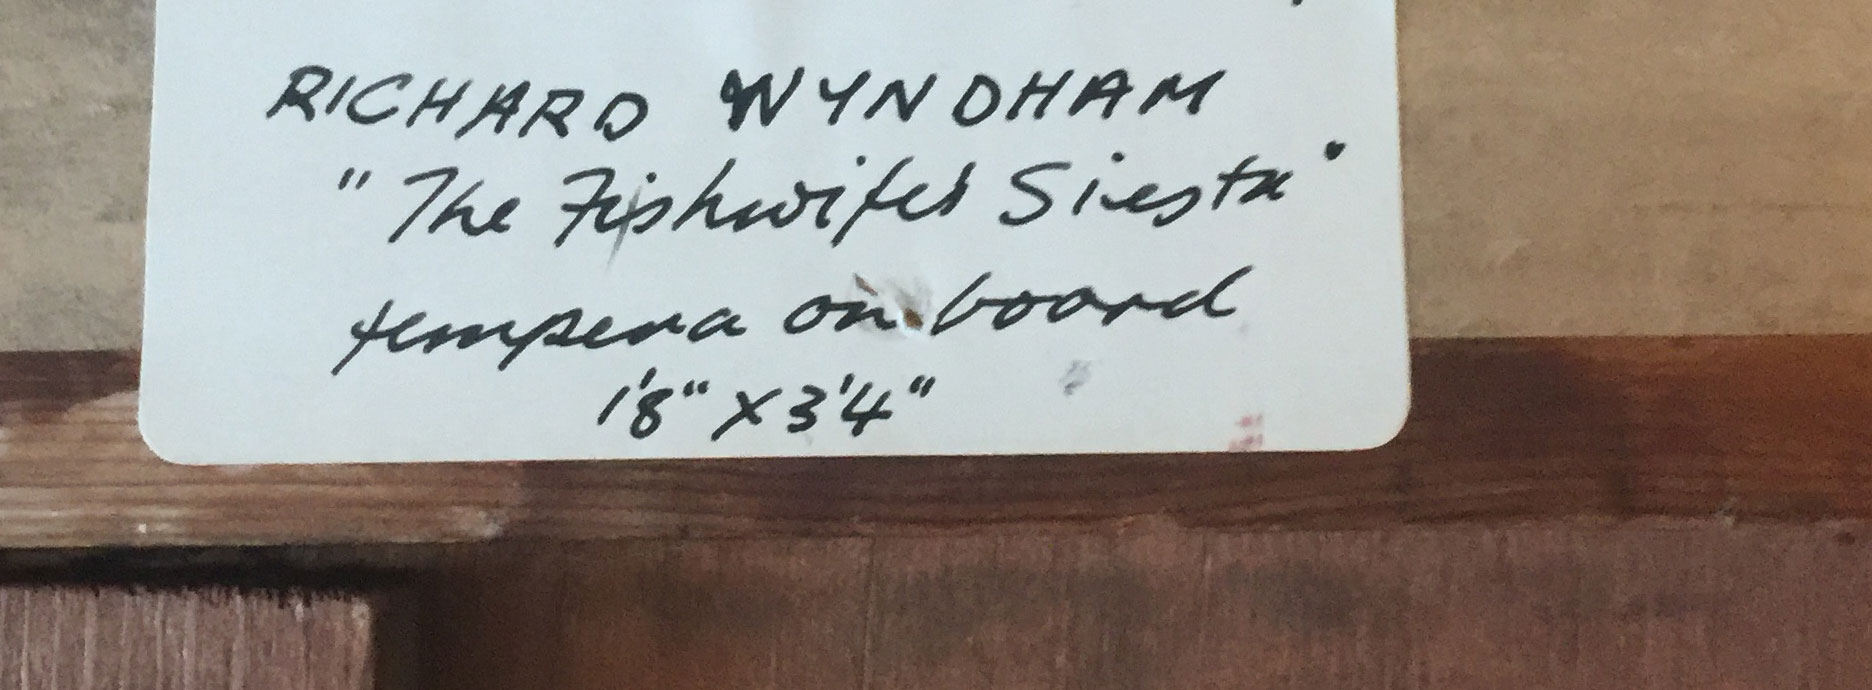 RICHARD WYNDHAM
"The Fishwifes Siesta"
tempera on board
1'8" X 3'4"